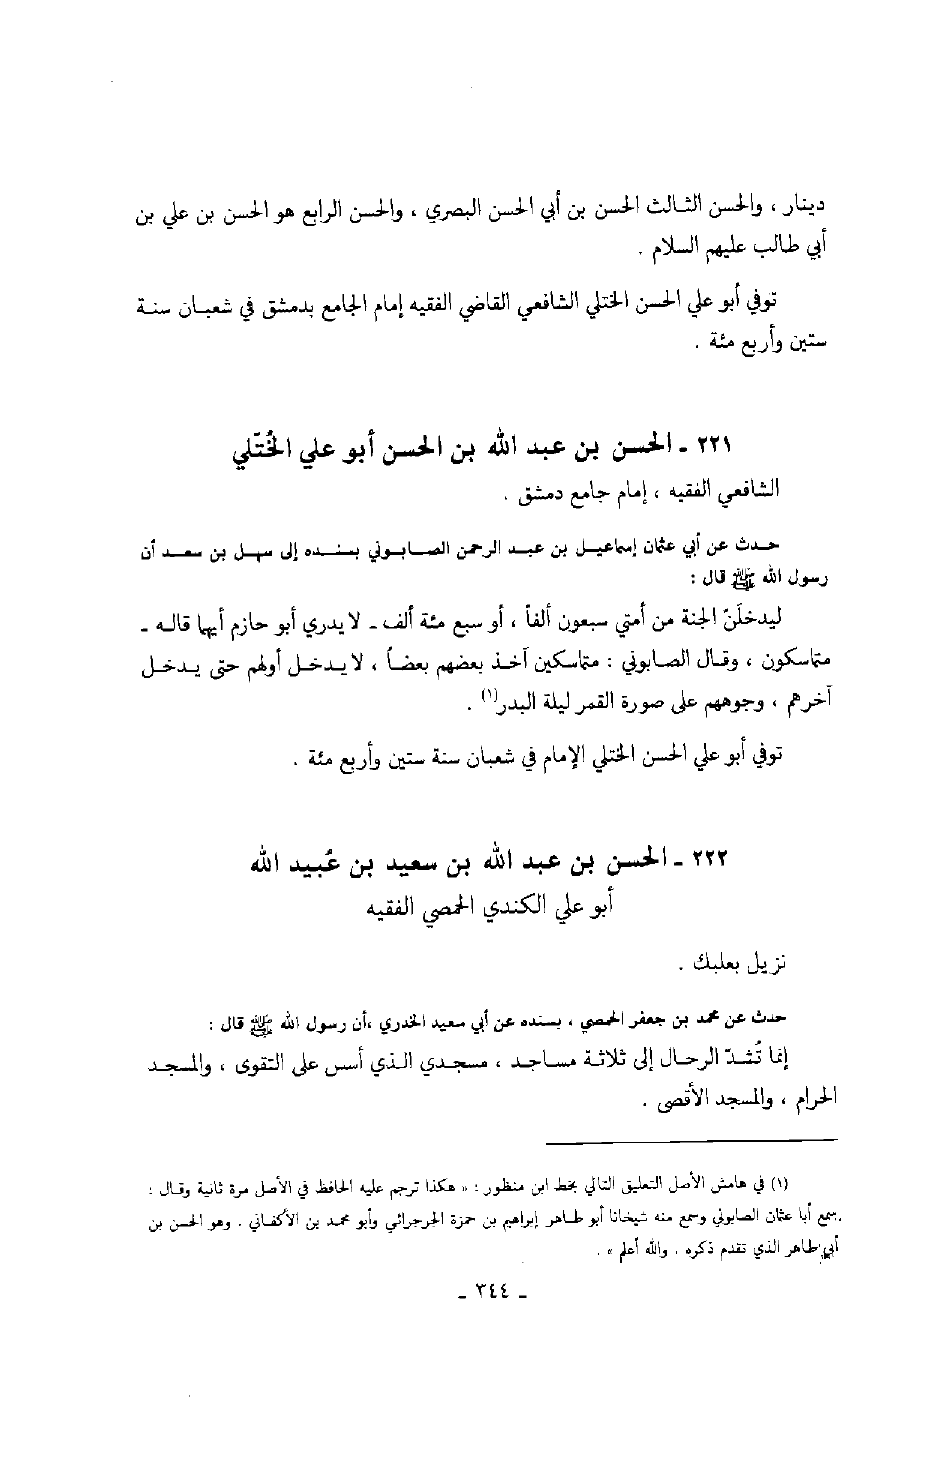 دينار ، والحسن الثالث الحسن بن أبي الحسن البصري ، والحسن الرابع هو الحسن بن علي بن
أبي طالب عليهم السلام .
توفي أبو علي الحسن الختلي الشافعي القاضي الفقيه إمام الجامع بدمشق في شعبان سنة
ستين وأربع مئة .
٢٢١ - الحسن بن عبد الله بن الحسن أبو علي الخُتّلي
الشافعي الفقيه ، إمام جامع دمشق .
حدث عن أبي عثمان إسماعيل بن عبد الرحمن الصابوني بسنده إلى سهل بن سعد أن
رسول الله ﷺ قال :
ليدخلَنّ الجنة من أمتي سبعون ألفاً ، أو سبع مئة ألف - لا يدري أبو حازم أيها قاله -
متماسكون ، وقال الصابوني : متماسكين آخذ بعضهم بعضاً ، لا يدخل أولهم حتى يدخل
آخرهم ، وجوههم على صورة القمر ليلة البدر(١) .
توفي أبو علي الحسن الختلي الإمام في شعبان سنة ستين وأربع مئة .
٢٢٢ - الحسن بن عبد الله بن سعيد بن عُبيد الله
أبو علي الكندي الحمصي الفقيه
نزيل بعلبك .
حدث عن محمد بن جعفر الحمصي ، بسنده عن أبي سعيد الخدري ،أن رسول الله ﷺ قال :
إنما تُشدّ الرحال إلى ثلاثة مساجد ، مسجدي الذي أسس على التقوى ، والمسجد
الحرام ، والمسجد الأقصى .
(١) في هامش الأصل التعليق التالي بخط ابن منظور : « هكذا ترجم عليه الحافظ في الأصل مرة ثانية وقال :
سمع أبا عثمان الصابوني وسمع منه شيخانا أبو طاهر إبراهيم بن حمزة الجرجرائي وأبو محمد بن الأكفاني . وهو الحسن بن
أبي طاهر الذي تقدم ذكره . والله أعلم » .
- ٣٤٤ -